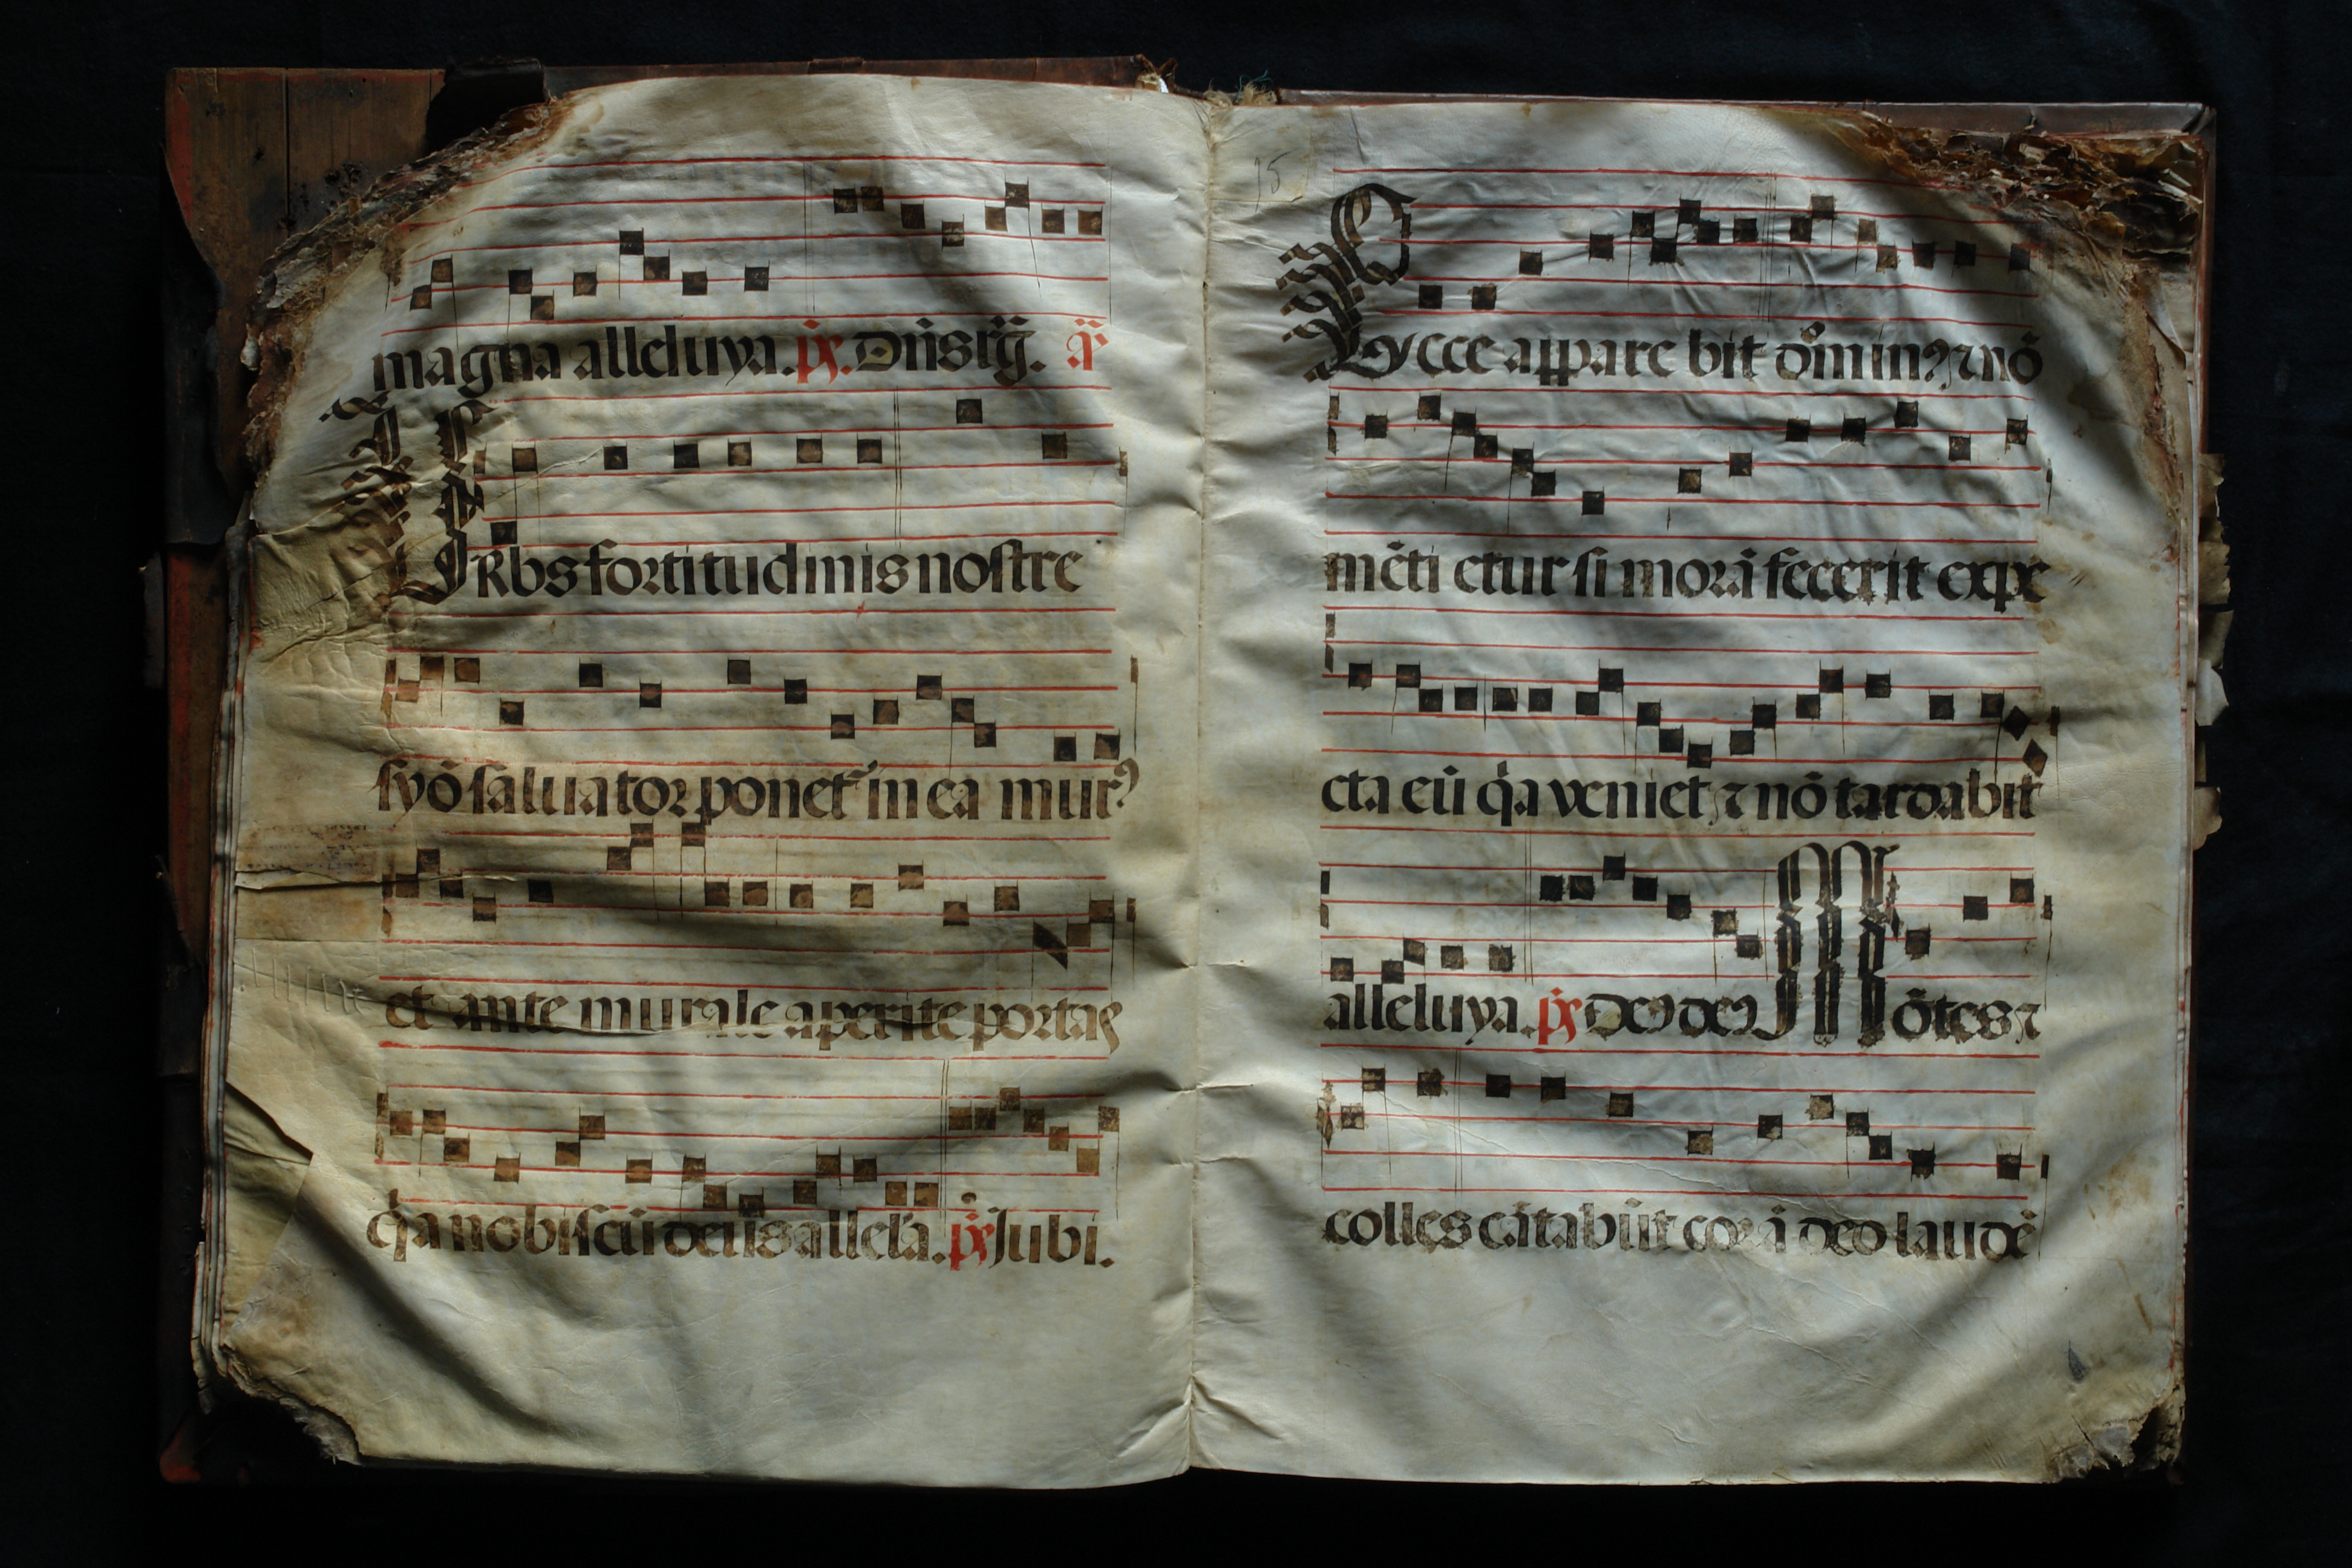 magna alleluya. ps. Dn̄s rḡ. añ
URbs fortitudinis nostre
syō saluator ponet᷑ in ea murꝯ
et ante murale aperite portas
q̇a nobiscū deus allel'a. ps Jubi.
15
Ecce apparebit dn̄inꝯ ⁊ nō
mēti etur si morā fecerit expe
cta eū q̇a veniet ⁊ nō tardabit
alleluya. ps Deꝯ deꝯ Mōtes ⁊
colles cātabūt corā deo laudē